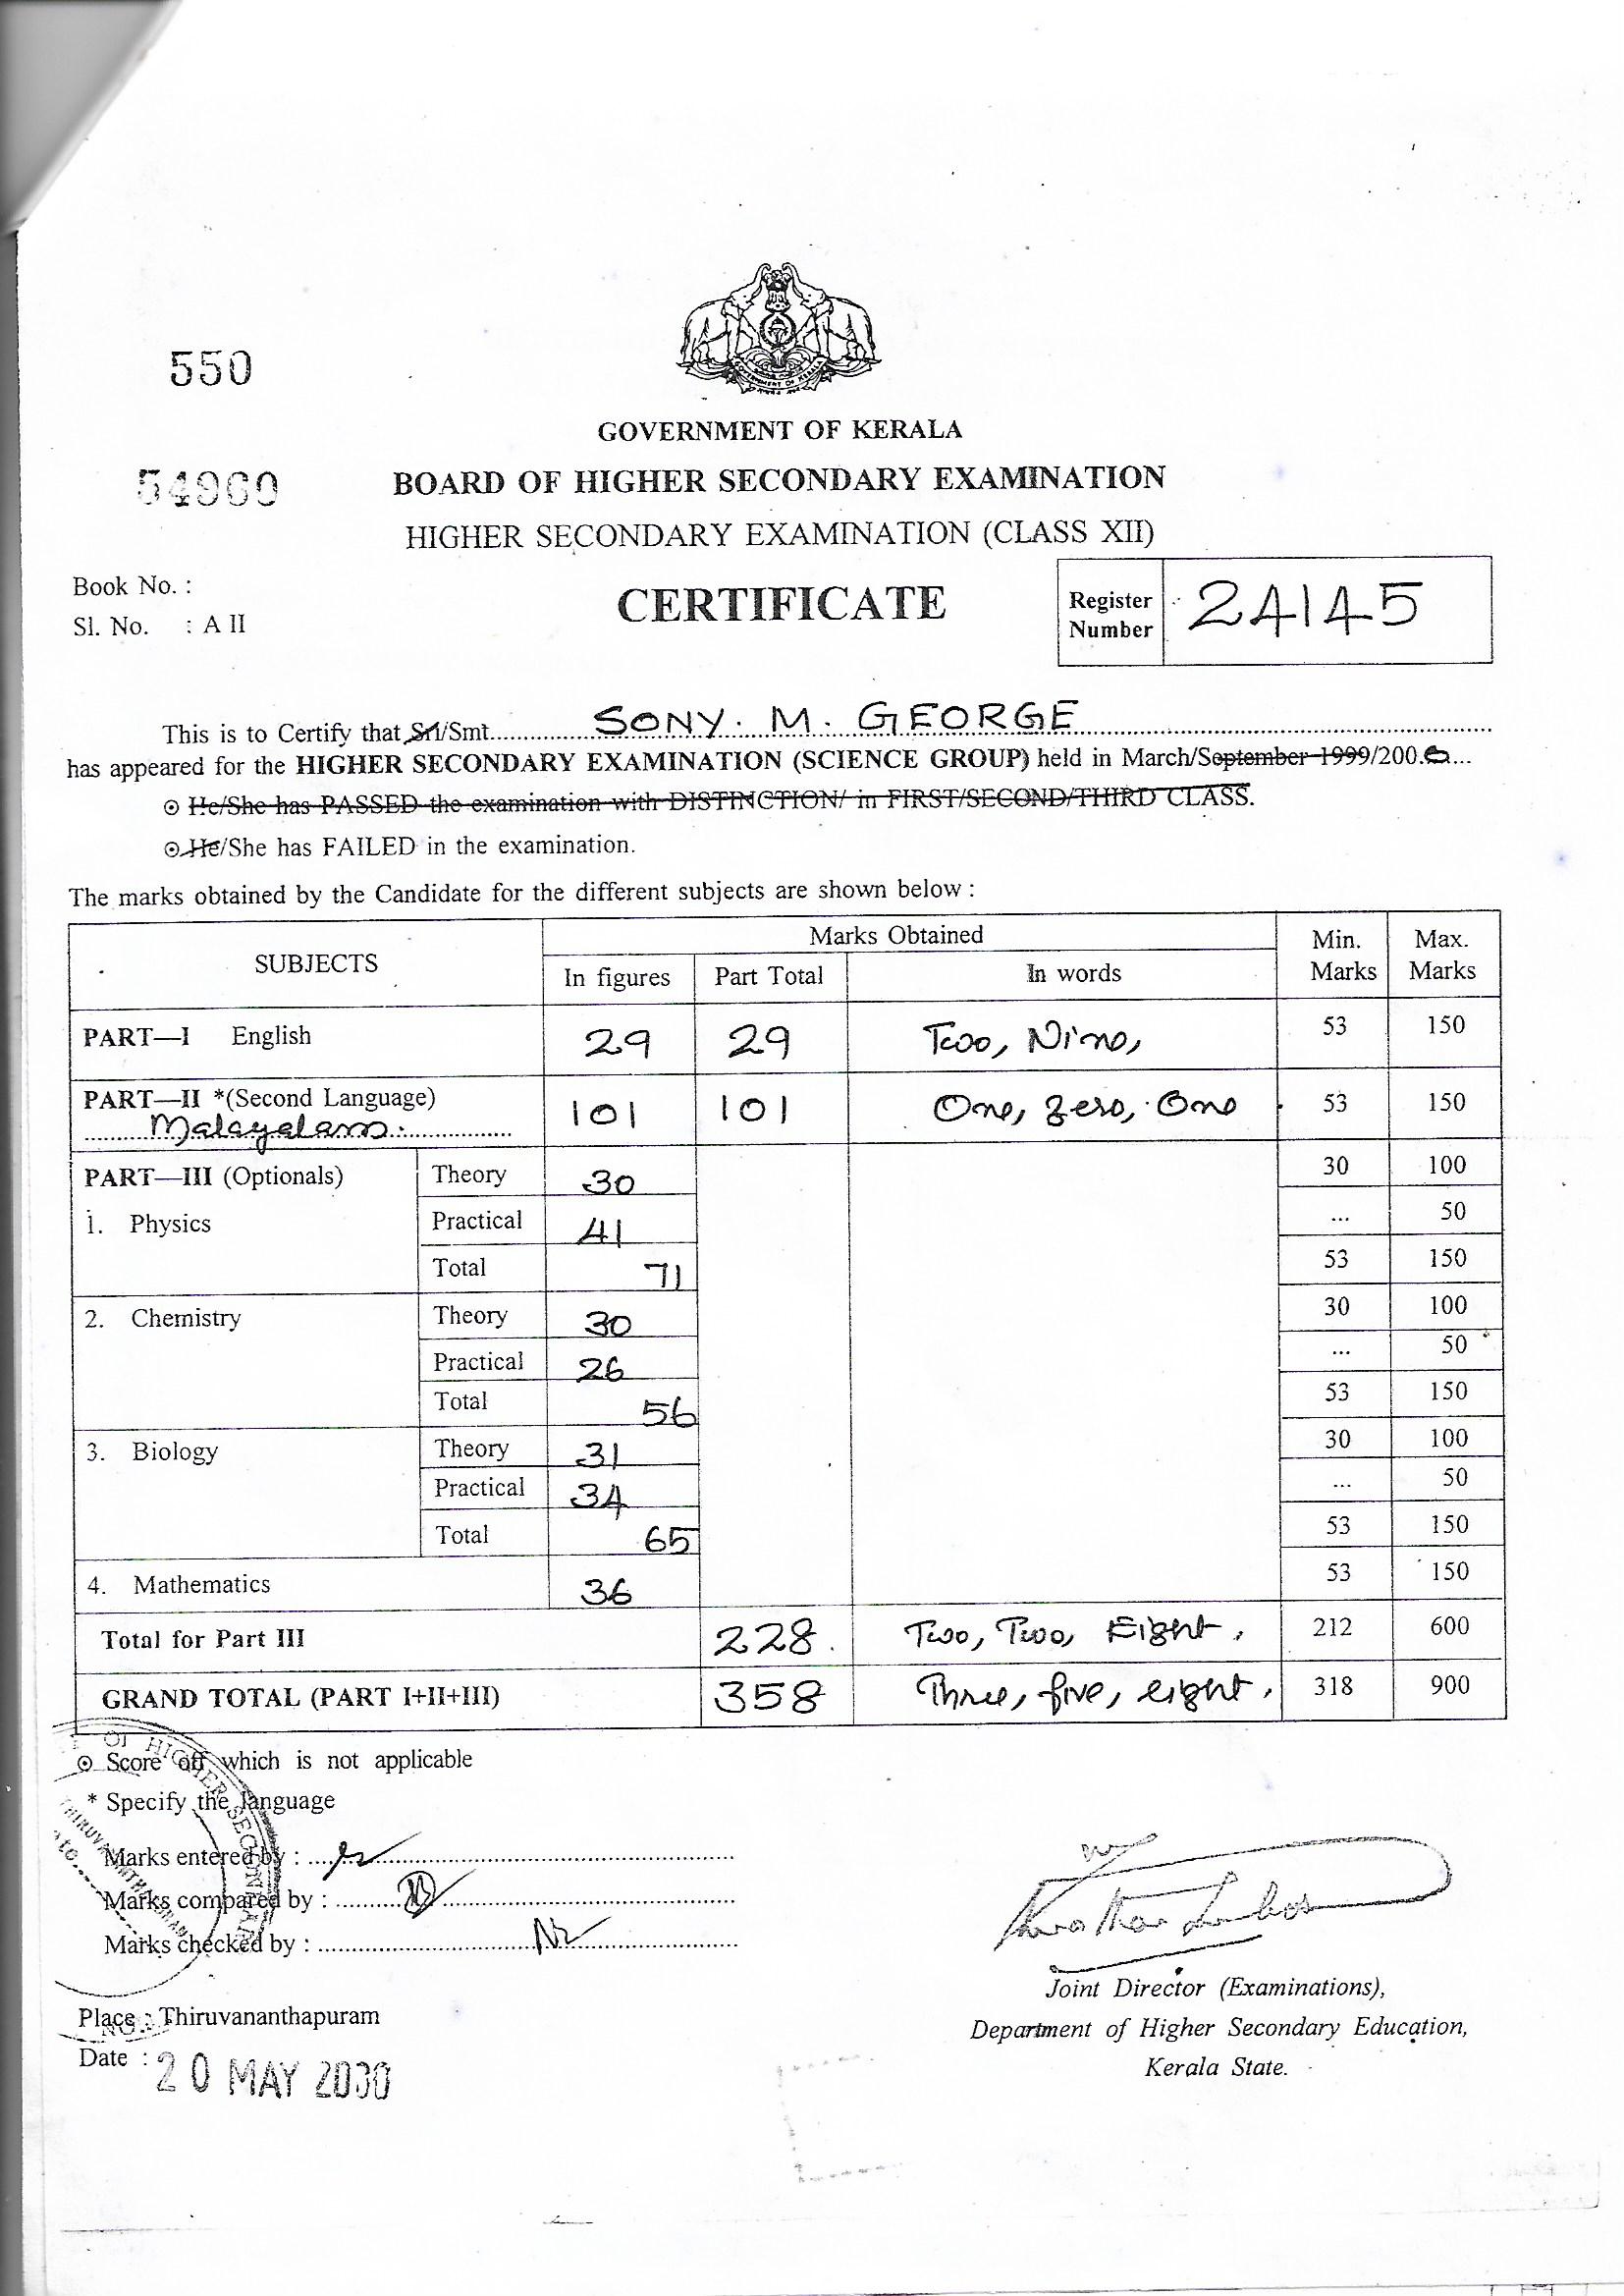 550
GOVERNMENT OF KERALA
54960
BOARD OF HIGHER SECONDARY EXAMINATION
HIGHER SECONDARY EXAMINATION (CLASS XII)
Book No. :
Sl. No. : A II
CERTIFICATE
Register Number 24145
This is to Certify that Sri/Smt. SONY. M. GEORGE
has appeared for the HIGHER SECONDARY EXAMINATION (SCIENCE GROUP) held in March/September 1999/200.0...
⊙ He/She has PASSED the examination with DISTINCTION/ in FIRST/SECOND/THIRD CLASS.
⊙ He/She has FAILED in the examination.
The marks obtained by the Candidate for the different subjects are shown below :
SUBJECTS Marks Obtained Min. Marks Max. Marks
In figures Part Total In words
PART—I English 29 29 Two, Nine, 53 150
PART—II *(Second Language) 101 101 One, zero, One 53 150
Malayalam.
PART—III (Optionals) Theory 30 30 100
1. Physics Practical 41 ... 50
Total 71 53 150
2. Chemistry Theory 30 30 100
Practical 26 ... 50
Total 56 53 150
3. Biology Theory 31 30 100
Practical 34 ... 50
Total 65 53 150
4. Mathematics 36 53 150
Total for Part III 228. Two, Two, Eight, 212 600
GRAND TOTAL (PART I+II+III) 358 Three, five, eight, 318 900
⊙ Score off which is not applicable
* Specify the language
Marks entered by :
Marks compared by :
Marks checked by :
Joint Director (Examinations),
Place : Thiruvananthapuram
Department of Higher Secondary Education,
Date : 20 MAY 2000
Kerala State.